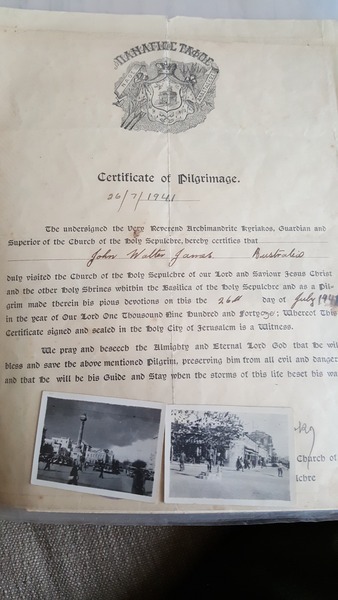 ΠΑΝΑΓΙΟΣ ΤΑΦΟΣ
Certificate of Pilgrimage.
26/7/1941
The undersigned the Very Reverend Archimandrite Kyriakos, Guardian and
Superior of the Church of the Holy Sepulchre, hereby certifies that
John Walter Australia
duly visited the Church of the Holy Sepulchre of our Lord and Saviour Jesus Christ
and the other Holy Shrines whithin the Basilica of the Holy Sepulchre and as a Pil-
grim made therein his pious devotions on this the 26th day of July 1941
in the year of Our Lord One Thousand Nine Hundred and Forty one: Whereof This
Certificate signed and sealed in the Holy City of Jerusalem is a Witness.
We pray and beseech the Almighty and Eternal Lord God that He wil
bless and save the above mentioned Pilgrim, preserving him from all evil and danger
and that he will be his Guide and Stay when the storms of this life beset his wa
Church of
lchre